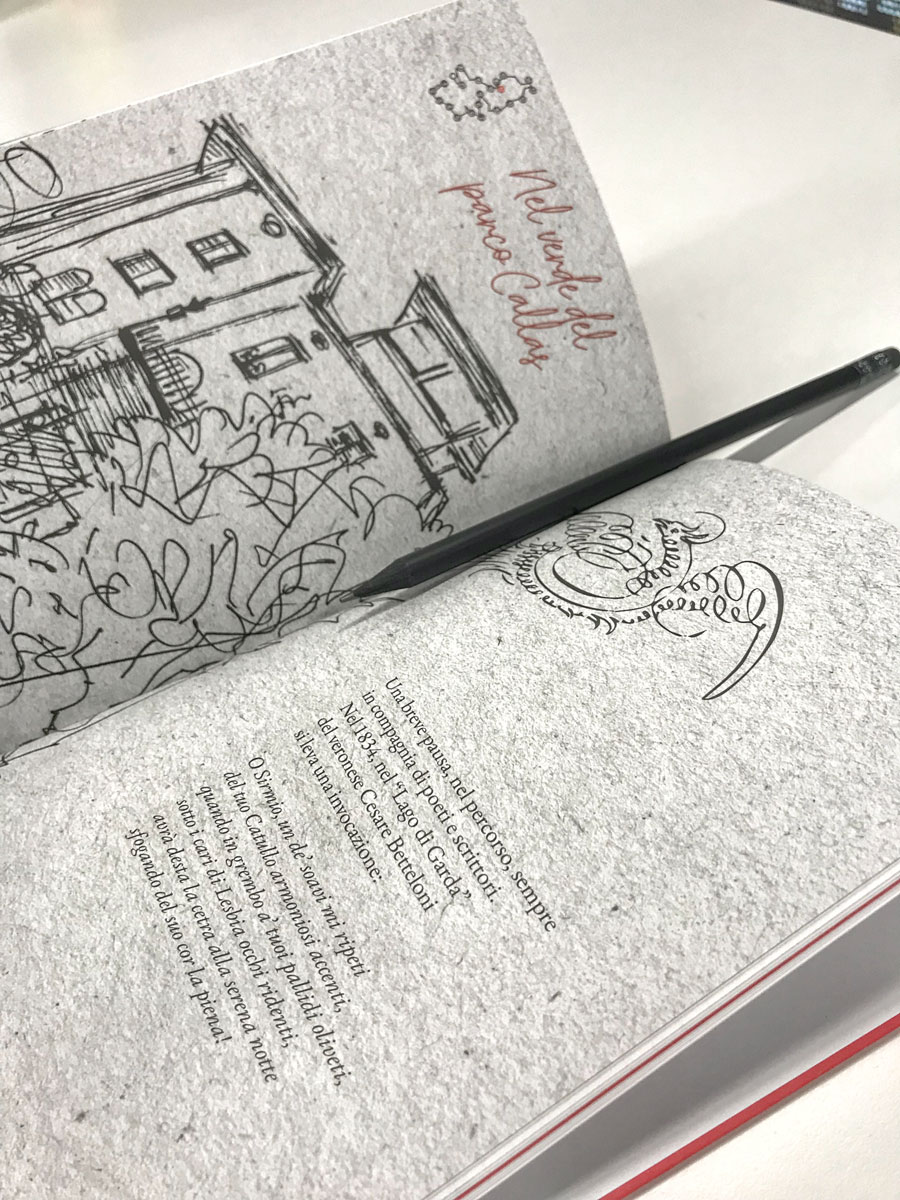 Nel verde del
parco Callas
Una breve pausa, nel percorso, sempre
in compagnia di poeti e scrittori.
Nel 1834, nel “Lago di Garda”
del veronese Cesare Betteloni
si leva una invocazione:
‘O Sirmio, un de’ soavi mi ripeti
del tuo Catullo armoniosi accenti,
quando in grembo a’ tuoi pallidi oliveti,
sotto i cari di Lesbia occhi ridenti,
avrà desta la cetra alla serena notte
sfogando del suo cor la piena!